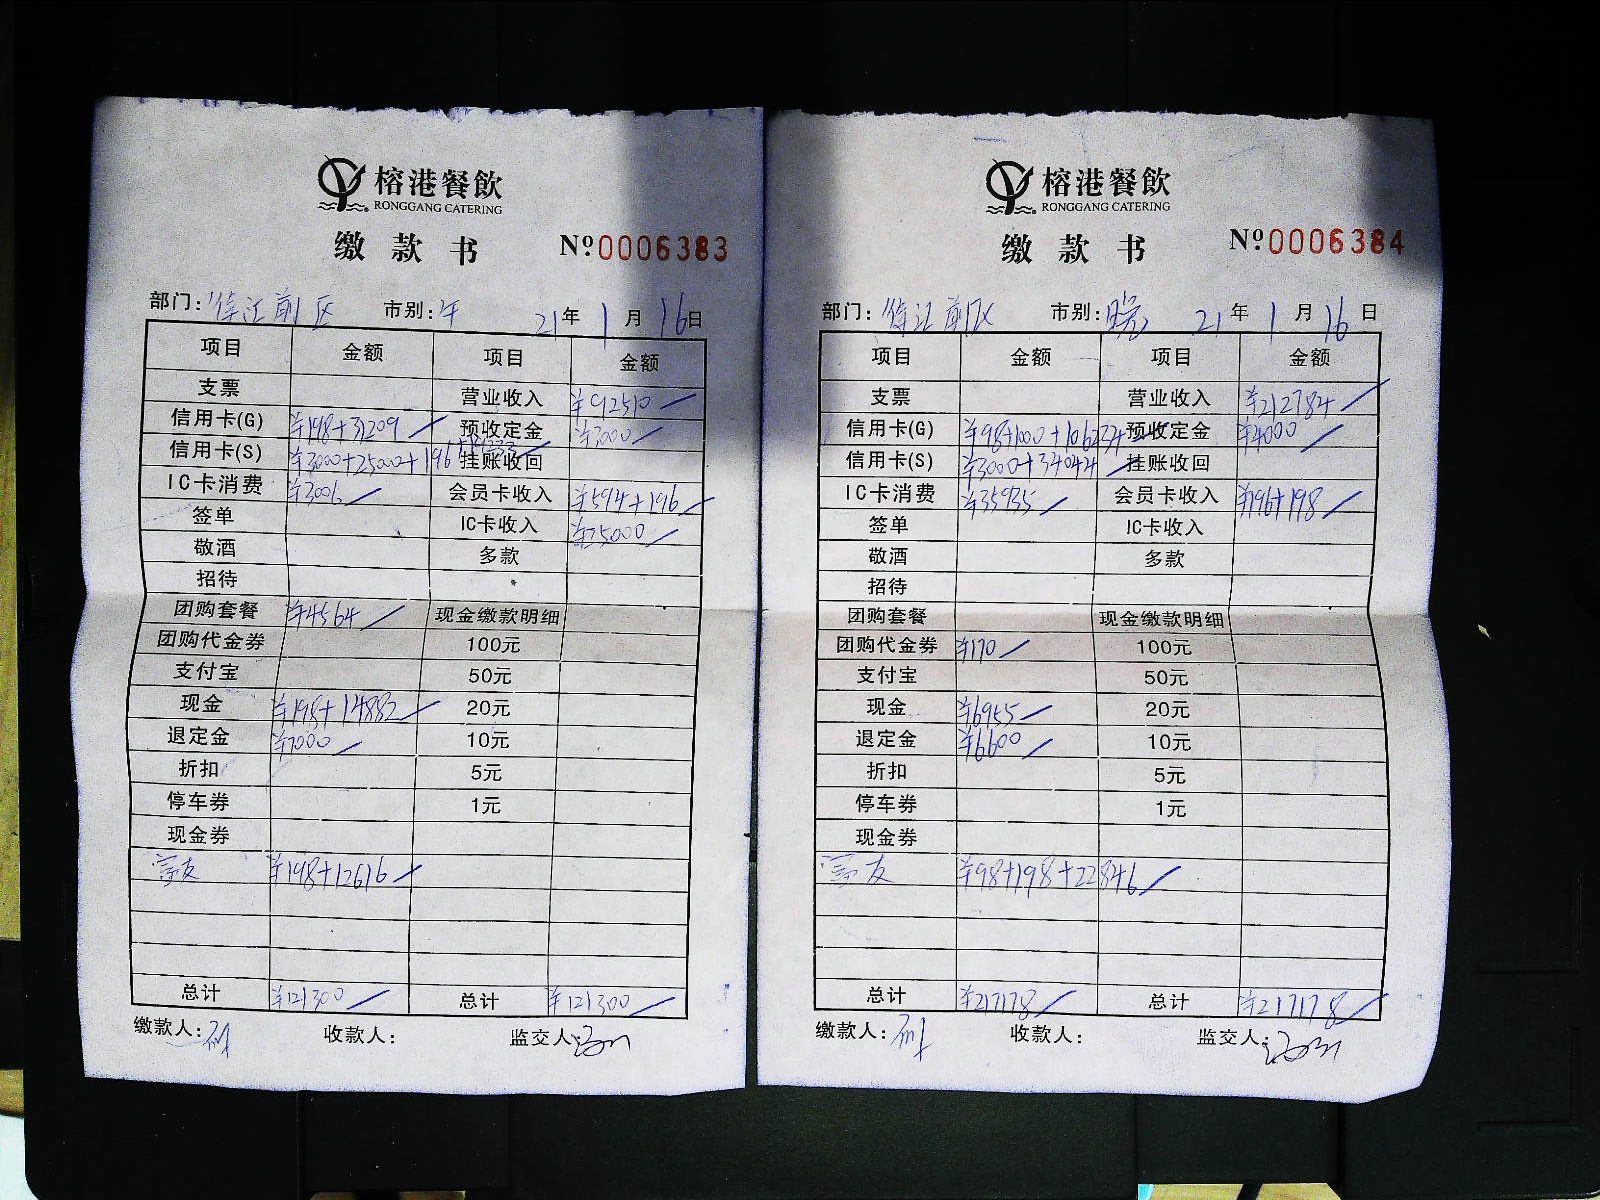 榕港餐飲
RONGGANG CATERING
缴款书 №0006383
部门: 前区 市别:午 21年1月16日
项目 金额 项目 金额
支票 营业收入 ¥92510
信用卡(G) ¥198+31209 预收定金 ¥3000
信用卡(S) ¥3000+25000+196 挂账收回
IC卡消费 ¥3006 会员卡收入 ¥594+196
签单 IC卡收入 ¥25000
敬酒 多款
招待
团购套餐 ¥4564 现金缴款明细
团购代金券 100元
支付宝 50元
现金 ¥195+14882 20元
退定金 ¥7000 10元
折扣 5元
停车券 1元
现金券
¥198+12616
总计 ¥121300 总计 ¥121300
缴款人: 收款人: 监交人:
榕港餐飲
RONGGANG CATERING
缴款书 №0006384
部门: 前区 市别:晚 21年1月16日
项目 金额 项目 金额
支票 营业收入 ¥212784
信用卡(G) ¥98+1000+106234 预收定金 ¥4000
信用卡(S) ¥3000+34044 挂账收回
IC卡消费 ¥35935 会员卡收入 ¥196+198
签单 IC卡收入
敬酒 多款
招待
团购套餐 现金缴款明细
团购代金券 ¥170 100元
支付宝 50元
现金 ¥6955 20元
退定金 ¥6600 10元
折扣 5元
停车券 1元
现金券
¥98+198+22846
总计 ¥217178 总计 ¥217178
缴款人: 收款人: 监交人: